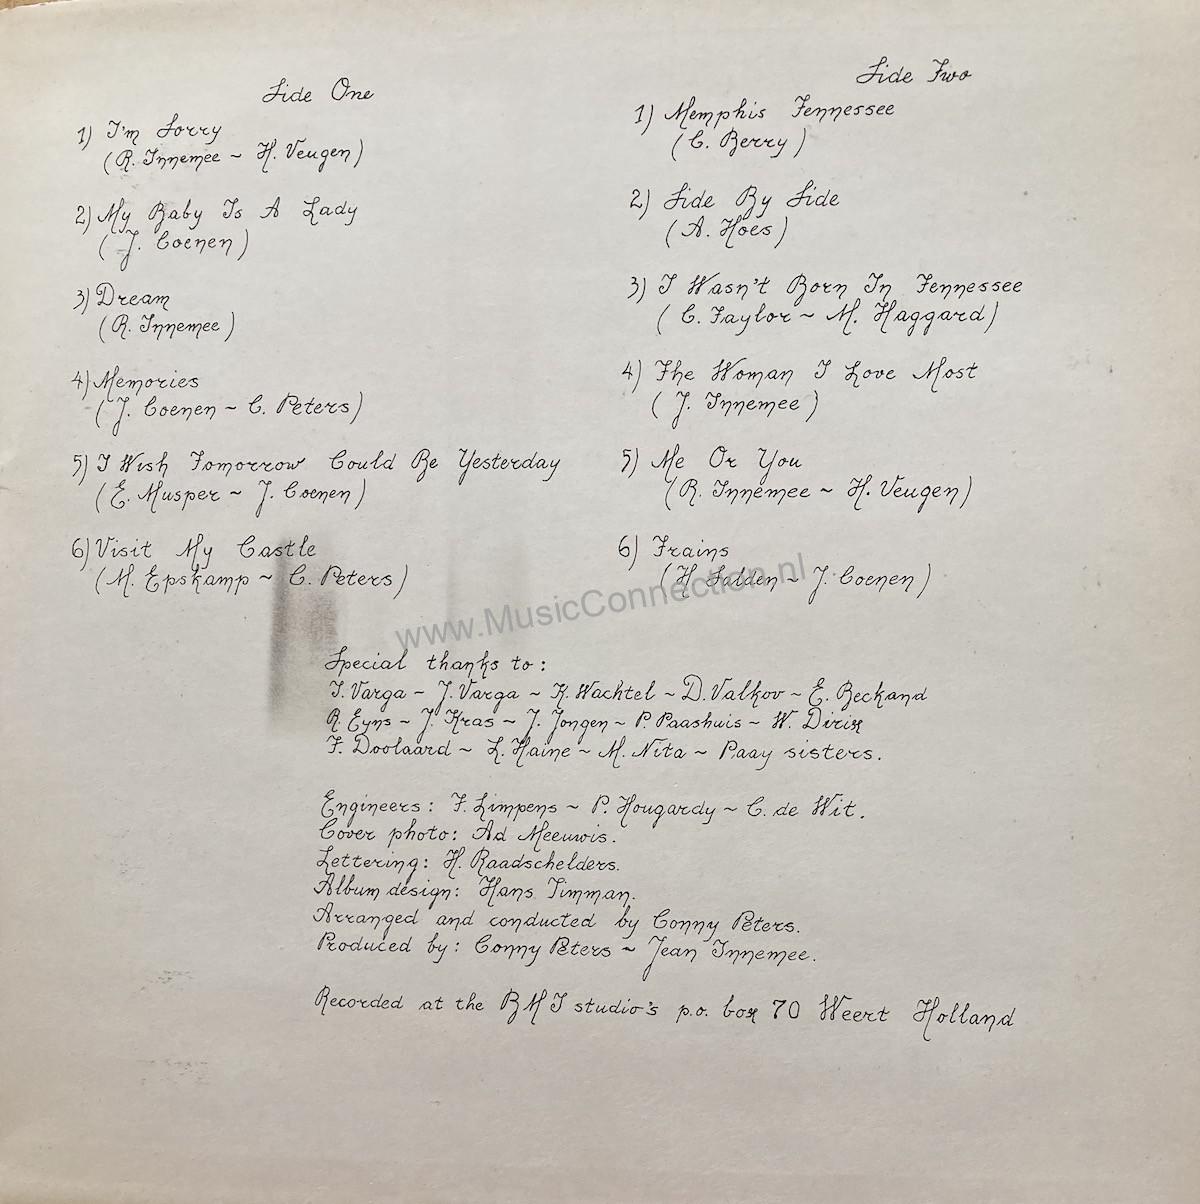 Side One
1) I'm Sorry
(R. Innemee ~ H. Veugen)
2) My Baby Is A Lady
(J. Coenen)
3) Dream
(R. Innemee)
4) Memories
(J. Coenen ~ C. Peters)
5) I Wish Tomorrow Could Be Yesterday
(E. Musper ~ J. Coenen)
6) Visit My Castle
(M. Epskamp ~ C. Peters)
Side Two
1) Memphis Tennessee
(C. Berry)
2) Side By Side
(A. Hoes)
3) I Wasn't Born In Tennessee
(C. Taylor ~ M. Haggard)
4) The Woman I Love Most
(J. Innemee)
5) Me Or You
(R. Innemee ~ H. Veugen)
6) Trains
(H. Talden ~ J. Coenen)
www.MusicConnection.nl
Special thanks to:
T. Varga ~ J. Varga ~ K. Wachtel ~ D. Valkov ~ E. Beckand
R. Eyns ~ J. Kras ~ J. Jongen ~ P. Paashuis ~ W. Dirix
F. Doolaard ~ L. Haine ~ M. Nita ~ Paay sisters.
Engineers: F. Limpens ~ P. Hougardy ~ C. de Wit.
Cover photo: Ad Meeuwis.
Lettering: H. Raadschelders.
Album design: Hans Timman.
Arranged and conducted by Conny Peters.
Produced by: Conny Peters ~ Jean Innemee.
Recorded at the studio's p.o. box 70 Weert Holland